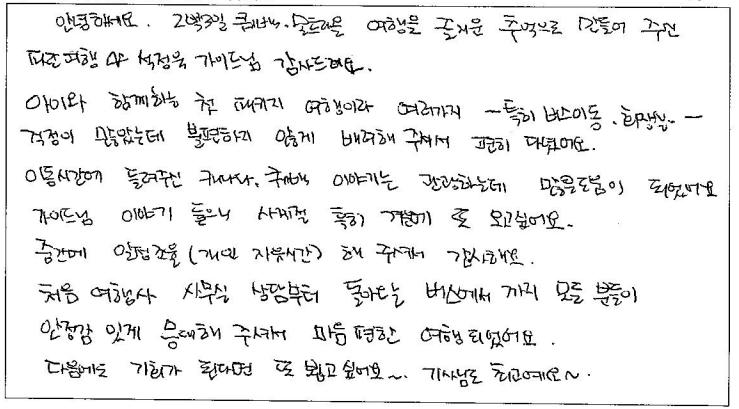 안녕하세요. 2박3일 퀘벡. 몬트리올 여행을 즐거운 추억으로 만들어 주신
파란여행 & 석정욱 가이드님 감사드려요.
아이와 함께하는 첫 패키지 여행이라 여러가지 ~특히 버스이동, 화장실.. ~
걱정이 많았는데 불편하지 않게 배려해 주셔서 편히 다녔어요.
이동시간에 들려주신 캐나다. 퀘벡 이야기는 관광하는데 많은도움이 되었어요
가이드님 이야기 들으니 사계절 특히 겨울에 또 오고싶어요.
중간에 일정조율 (개인 자유시간) 해 주셔서 감사해요.
처음 여행사 사무실 상담부터 돌아오는 버스에서 까지 모든 분들이
안정감 있게 응대해 주셔서 마음 편한 여행되었어요.
다음에도 기회가 된다면 또 뵙고 싶어요~. 기사님도 최고예요~.